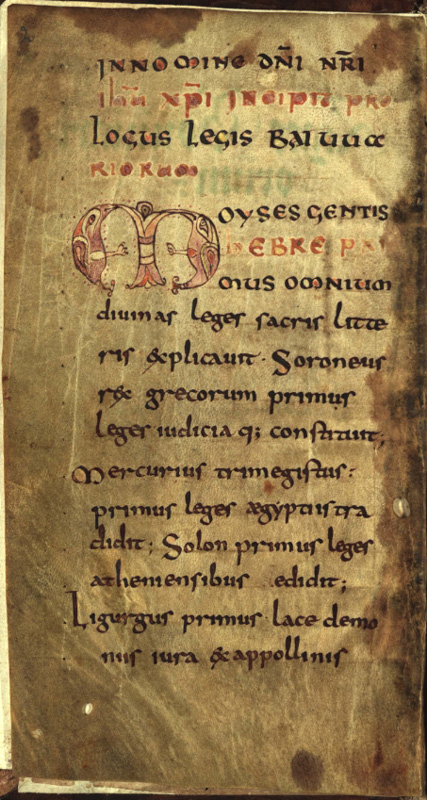 INNOMINE DN̄I NR̄I
IH̄U XP̄I INCIPIT PRO
LOGUS LEGIS BAIUUA
RIORUM
MOYSES GENTIS
HEBRE PRI
MUS OMNIUM
diuinas leges sacris litte
ris explicauit· Soroneus
rex grecorum primus
leges iudicia q; constituit;
Mercurius trimegistus:
primus leges ægyptiis tra
didit; Solon primus leges
atheniensibus edidit;
Ligurgus primus lacedemo
niis iura &appollinis